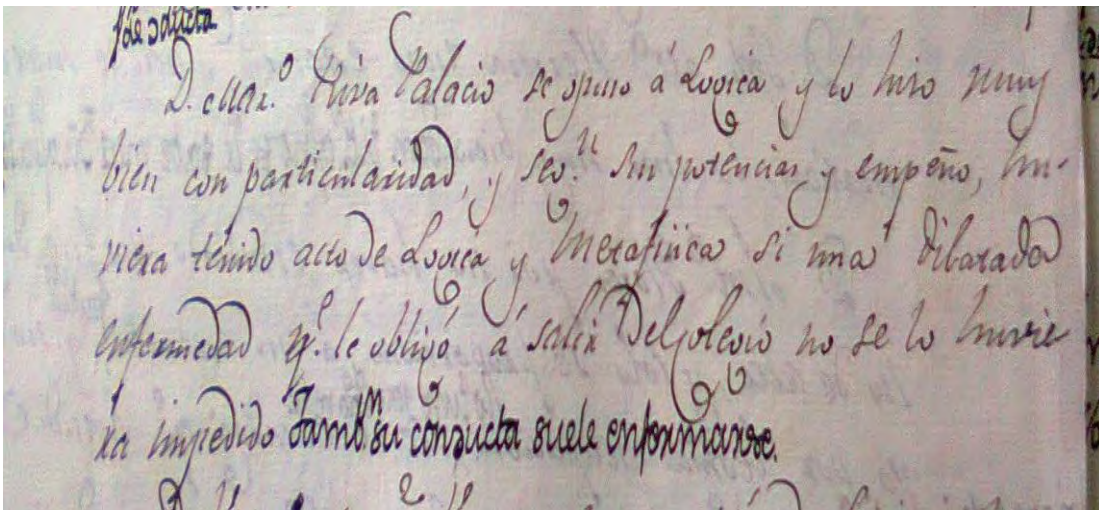 de conducta
D. Mar.º Riva Palacio se opuso á Logica y lo hiso muy
bien con particularidad, y seg.n sus potencias, y empeño, hu-
viera tenido acto de Logica y Metafisica si una dilatada
enfermedad q.e le obligó á salir del colegio no se lo huvie
ra impedido Tamb.n su conducta suele enformarse.